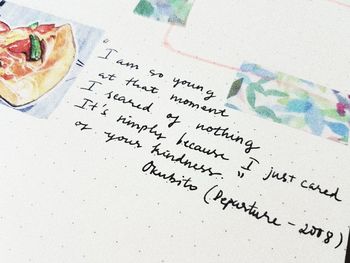 "
I am so young
at that moment
I scared of nothing
It's simply because I just cared
of your kindness. "
Okubito (Departure - 2008)